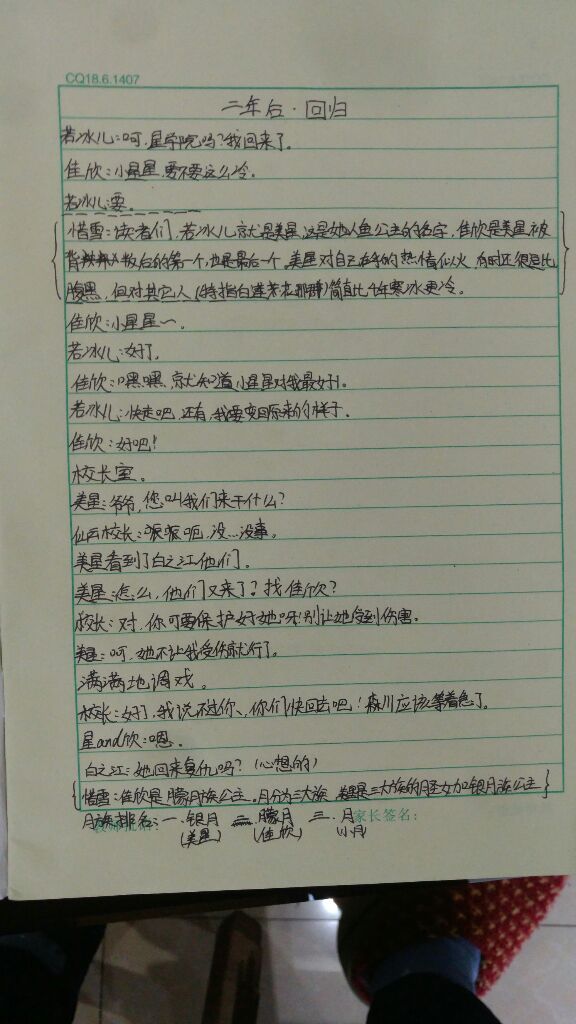 CQ18.6.1407
二年后·回归
若冰儿:呵,星学院吗?我回来了。
佳欣:小星星,要不要这么冷。
若冰儿:要。
{惜雪:读者们,若冰儿就是美星,这是她人鱼公主的名字,佳欣是美星被
后的第一个,也是最后一个,美星对自己在乎的热情似火,有时还很是
腹黑,但对其它人(特指白莲花那群)简直比千年寒冰更冷。}
佳欣:小星星~。
若冰儿:好了。
佳欣:嘿嘿,就知道小星星对我最好!。
若冰儿:快走吧,还有,我要变回原来的样子。
佳欣:好吧!
校长室。
美星:爷爷,您叫我们来干什么?
仙云校长:咳咳呃,没…没事。
美星看到了白之江他们。
美星:怎么,他们又来了?找佳欣?
校长:对,你可要保护好她呀!别让她受到伤害。
美星:呵,她不让我受伤就行了。
满满地调戏。
校长:好了,我说不过你、你们快回去吧!森川应该等着急了。
星and欣:嗯。
白之江:她回来复仇吗?(心想的)
{惜雪:佳欣是朦月族公主。月分为三大族,美星是三大族的月圣女加银月族公主}
月族排名:一.银月 二.朦月 三.月 家长签名:
(美星) (佳欣) (小月)